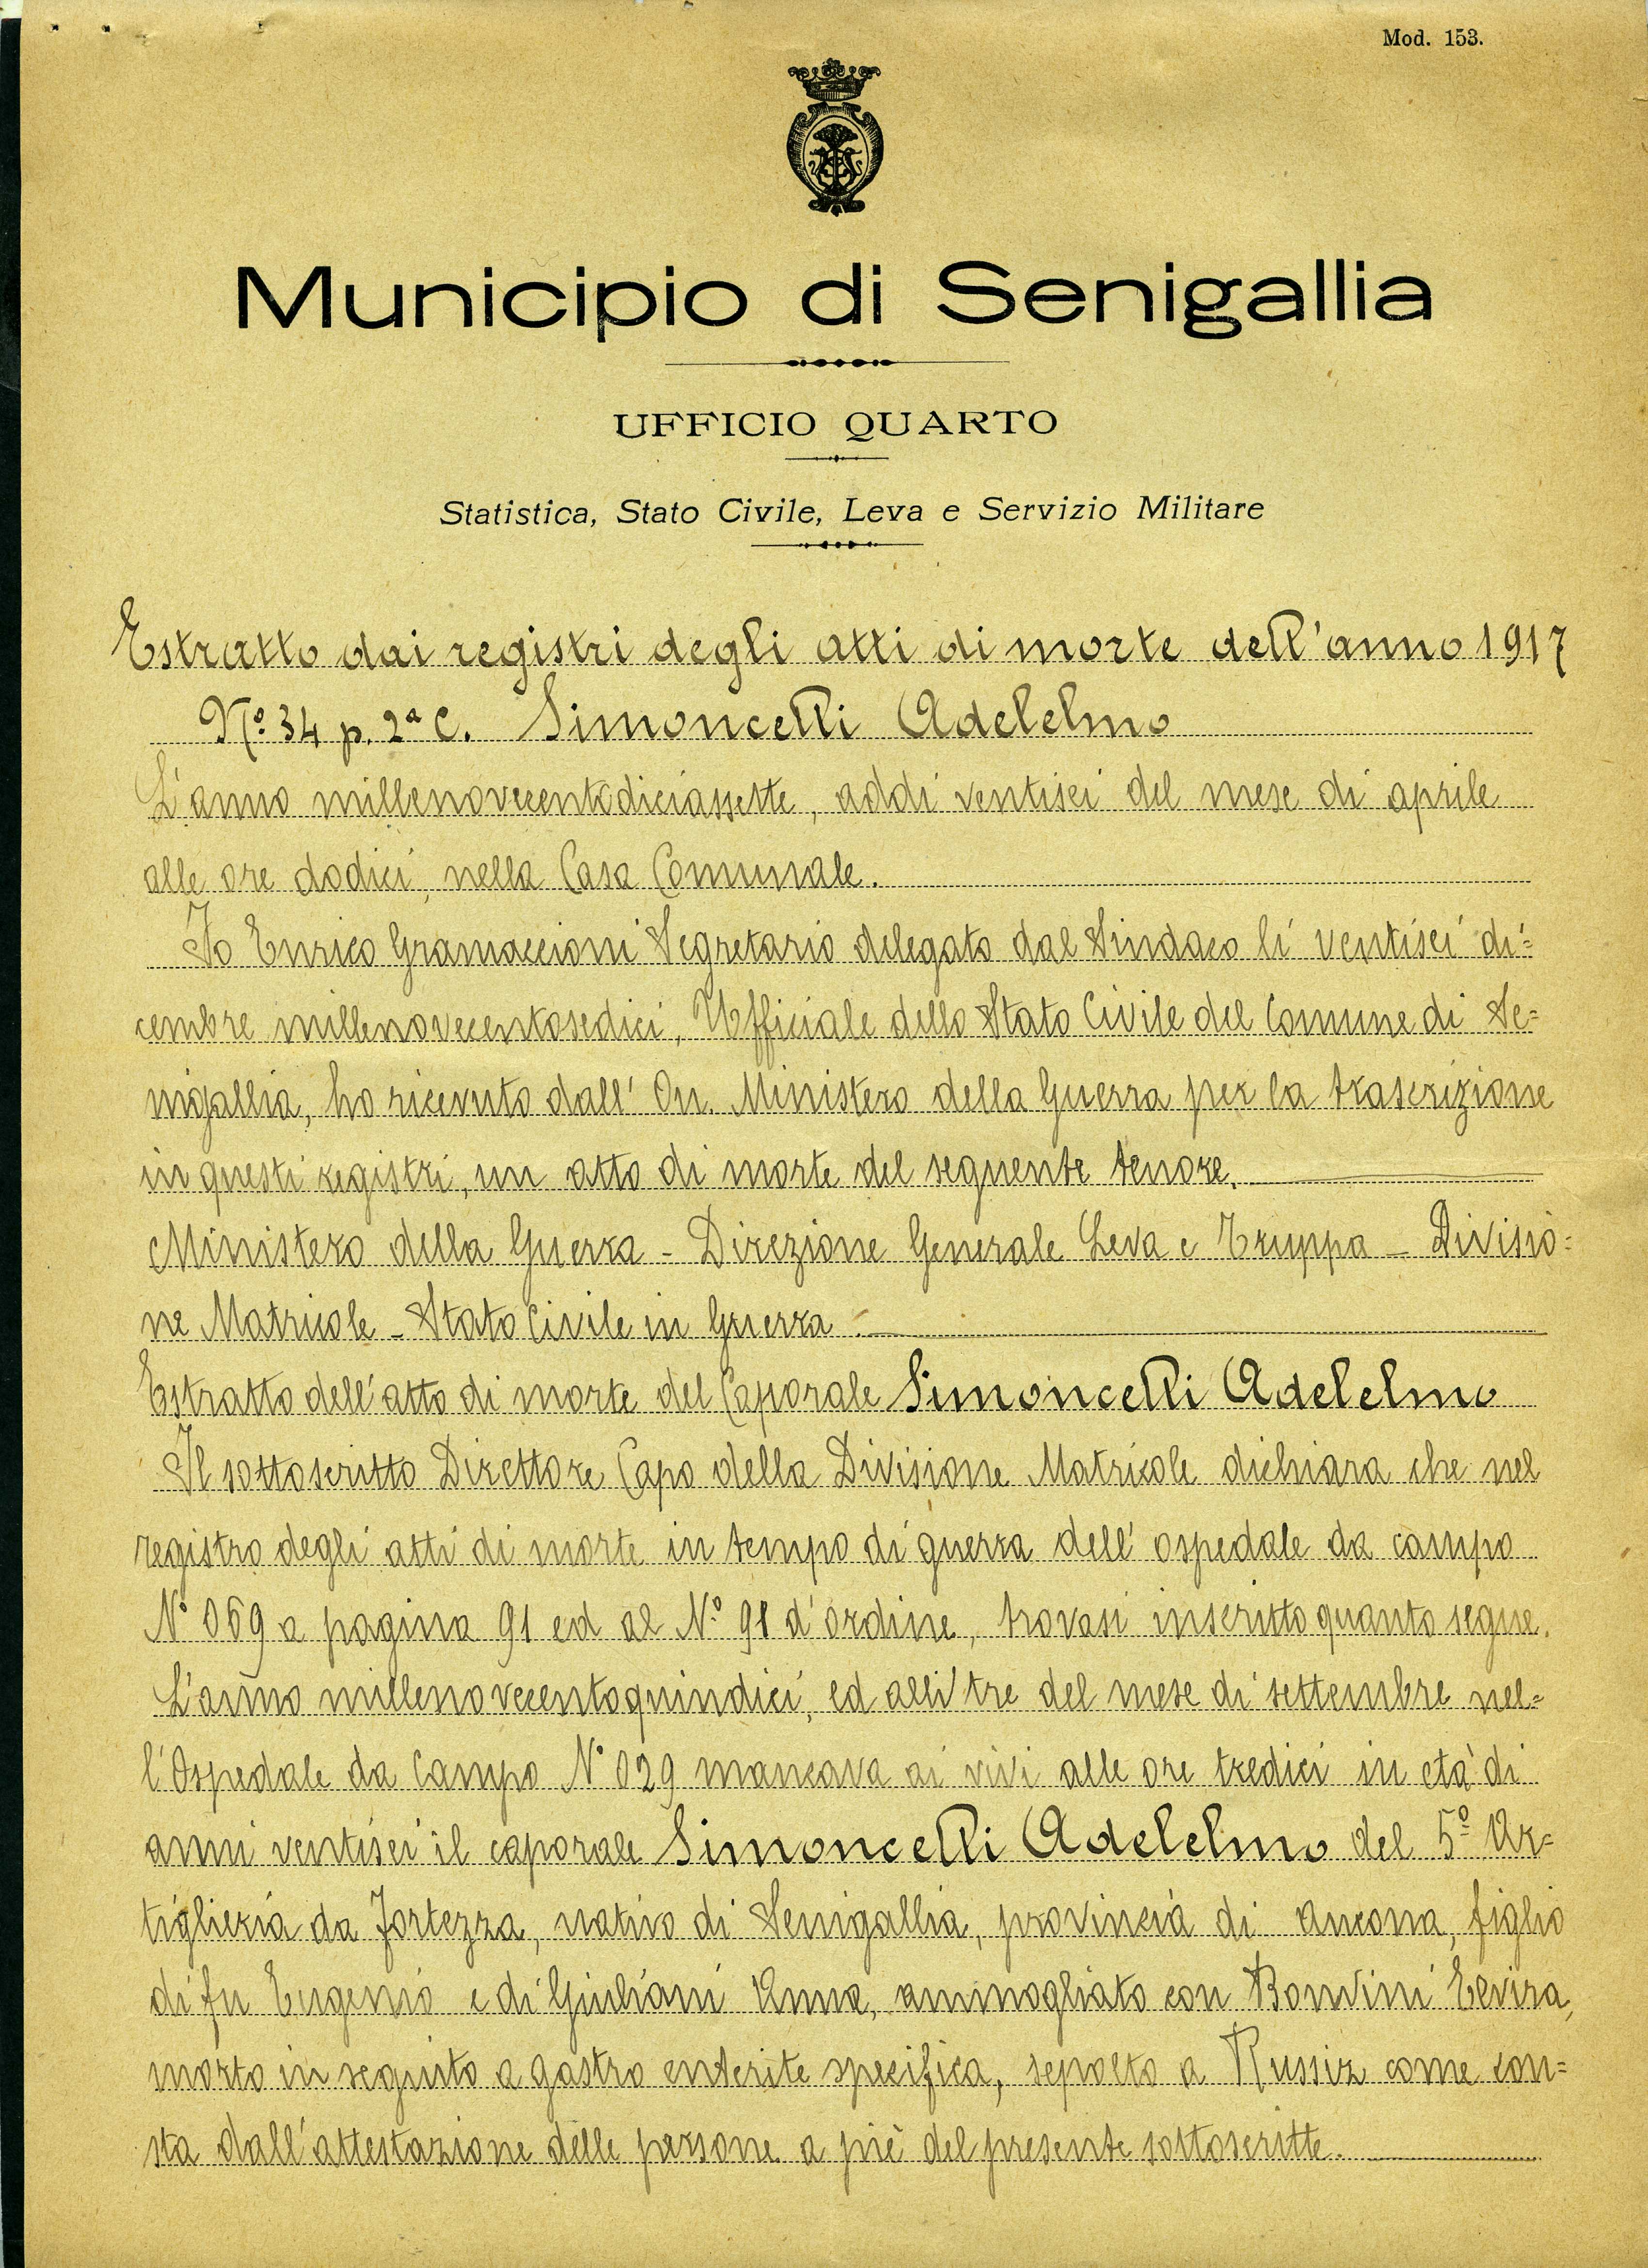 Mod. 153.
Municipio di Senigallia
UFFICIO QUARTO
Statistica, Stato Civile, Leva e Servizio Militare
Estratto dai registri degli atti di morte dell'anno 1917
N.o 34 p. 2a C. Simoncelli Adelelmo
L'anno millenovecentodiciassette, addi ventisei del mese di aprile
alle ore dodici, nella Casa Comunale.
Io Enrico Gramaccioni Segretario delegato dal Sindaco li ventisei di=
cembre millenovecentosedici, Ufficiale dello Stato Civile del Comune di Se=
nigallia, ho ricevuto dall'On. Ministero della Guerra per la trascrizione
in questi registri, un atto di morte del seguente tenore.
Ministero della Guerra - Direzione Generale Leva e Truppa - Divisio=
ne Matricole - Stato Civile in Guerra.
Estratto dell'atto di morte del Caporale Simoncelli Adelelmo
Il sottoscritto Direttore Capo della Divisione Matricole dichiara che nel
registro degli atti di morte in tempo di guerra dell'ospedale da campo
N° 069 a pagina 91 ed al N.o 91 d'ordine, trovasi inscritto quanto segue.
L'anno millenovecentoquindici, ed alli tre del mese di settembre nel=
l'Ospedale da Campo N° 029 mancava ai vivi alle ore tredici in età di
anni ventisei il caporale Simoncelli Adelelmo del 5o Ar=
tiglieria da Fortezza, nativo di Senigallia, provincia di Ancona, figlio
di fu Eugenio e di Giuliani Anna, ammogliato con Bonvini Elvira,
morto in seguito a gastro enterite specifica, sepolto a Russiz come con=
sta dall'attestazione delle persone a piè del presente sottoscritte.